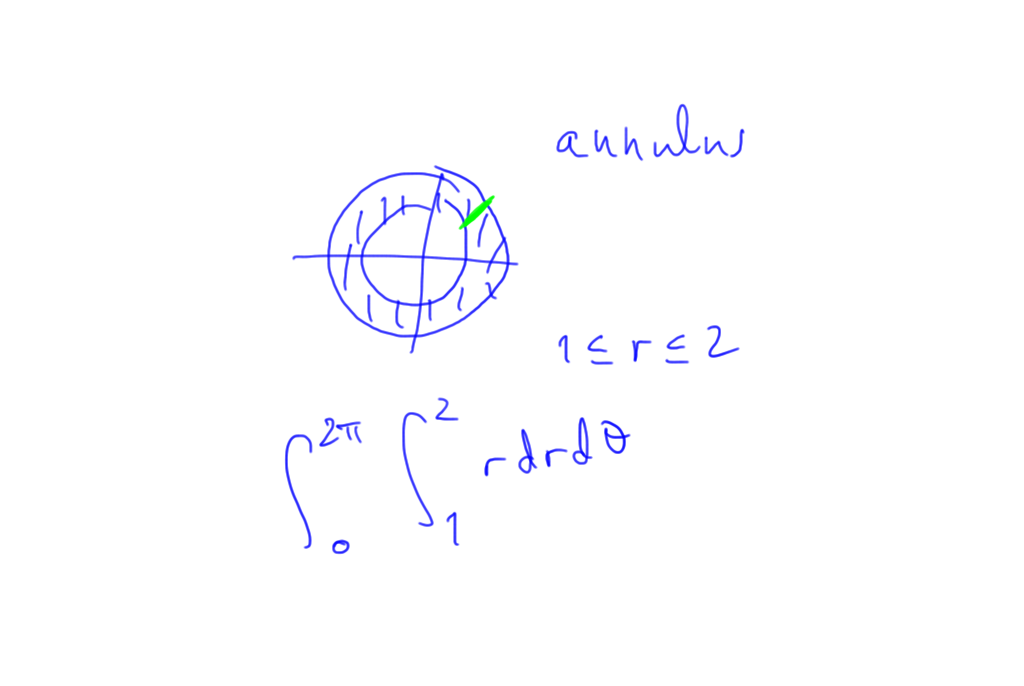 annulus
1 ≤ r ≤ 2
∫₀^{2π} ∫₁^{2} r dr dθ